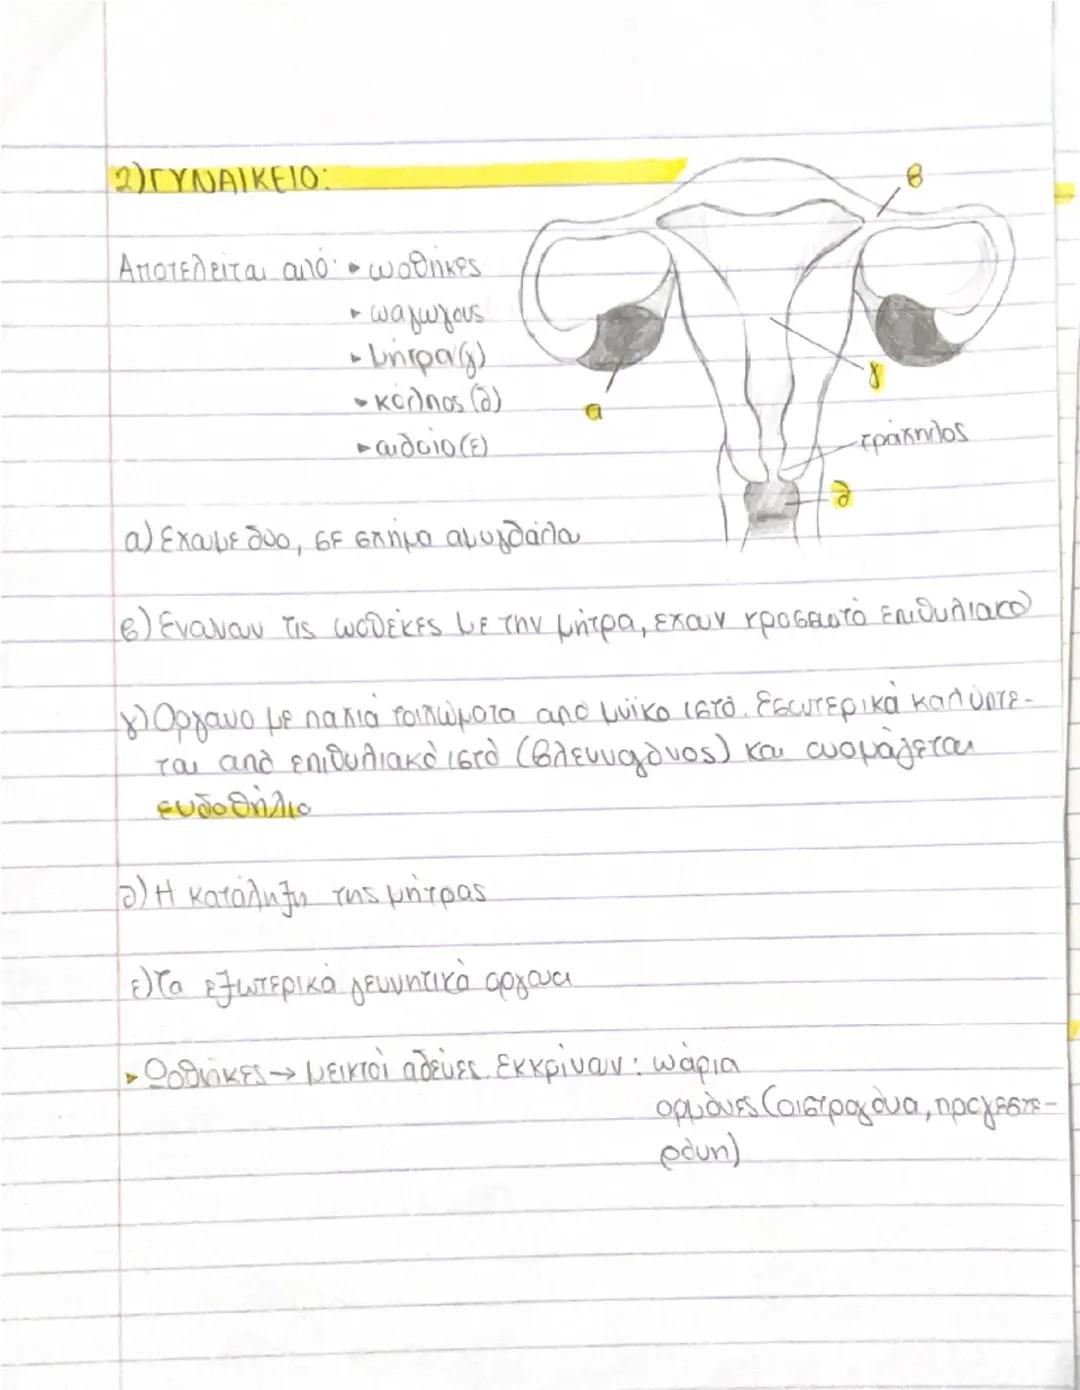 2)ΓΥΝΑΙΚΕΙΟ:
β
Αποτελείται από: ▸ ωοθήκες
▸ ωαγωγους
▸ μήτρα(γ)
▸ κόλπος (δ)
▸ αιδοίο(ε)
α
γ
τράχηλος
δ
α) Εχουμε δύο, σε σχήμα αμυγδάλα
β) Ενώνουν τις ωοθήκες με την μήτρα, εχουν κροσσωτό επιθυλιακό
γ) Οργανο με παχιά τοιχώματα από μυϊκο ιστό. Εσωτερικά καλύπτε-
ται από επιθυλιακό ιστό (βλεννογόνος) και ονομάζεται
ενδοθήλιο
δ) Η κατάληξη της μήτρας
ε) Τα εξωτερικά γεννητικά οργανα
▸ Ωοθήκες → μεικτοί αδένες. Εκκρίνουν: ωάρια
ορμόνες (οιστρογόνα, προγεστε-
ρόνη)